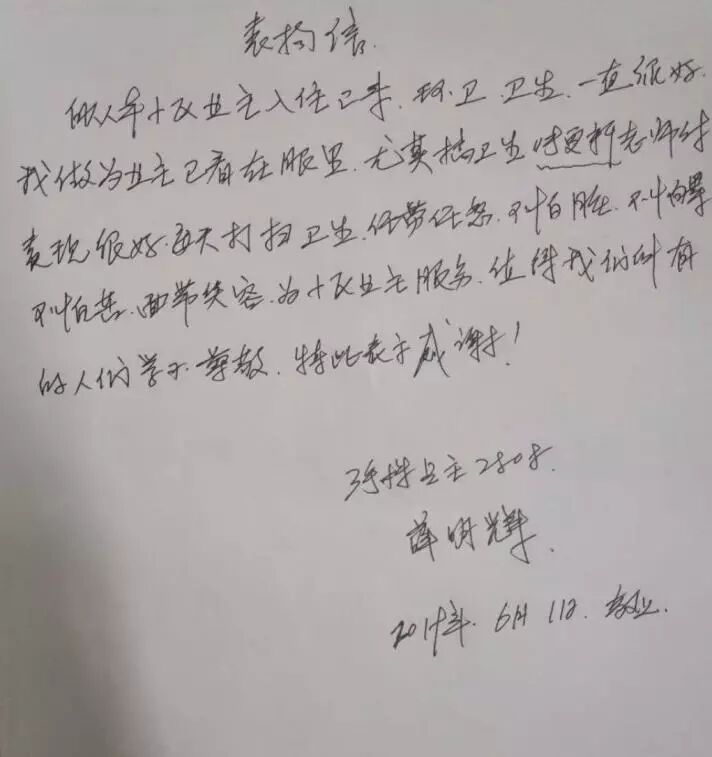 表扬信.
小区业主入住已来.环卫.卫生.一直很好.
我做为业主已看在眼里.尤其搞卫生 师付
表现很好.每天打扫卫生.任劳任怨.不怕脏.不怕累
不怕苦.面带笑容.为小区业主服务.值得我们所有
的人们学习.尊敬.特此表示感谢!
3号楼业主2808.
薛明辉.
6月11日.